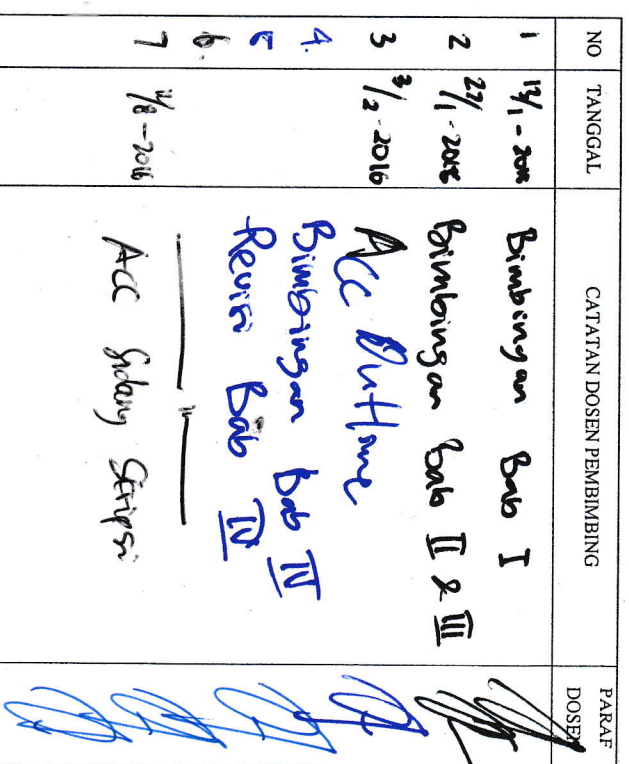 NO TANGGAL CATATAN DOSEN PEMBIMBING PARAF DOSEN
1 Bimbingan Bab I
2 27/1 - 2016 Bimbingan Bab II & III
3 3/2 - 2016 Acc Outline
4. Bimbingan Bab IV
5 Revisi Bab IV
6. — " —
7 - 2016 Acc Sidang Skripsi